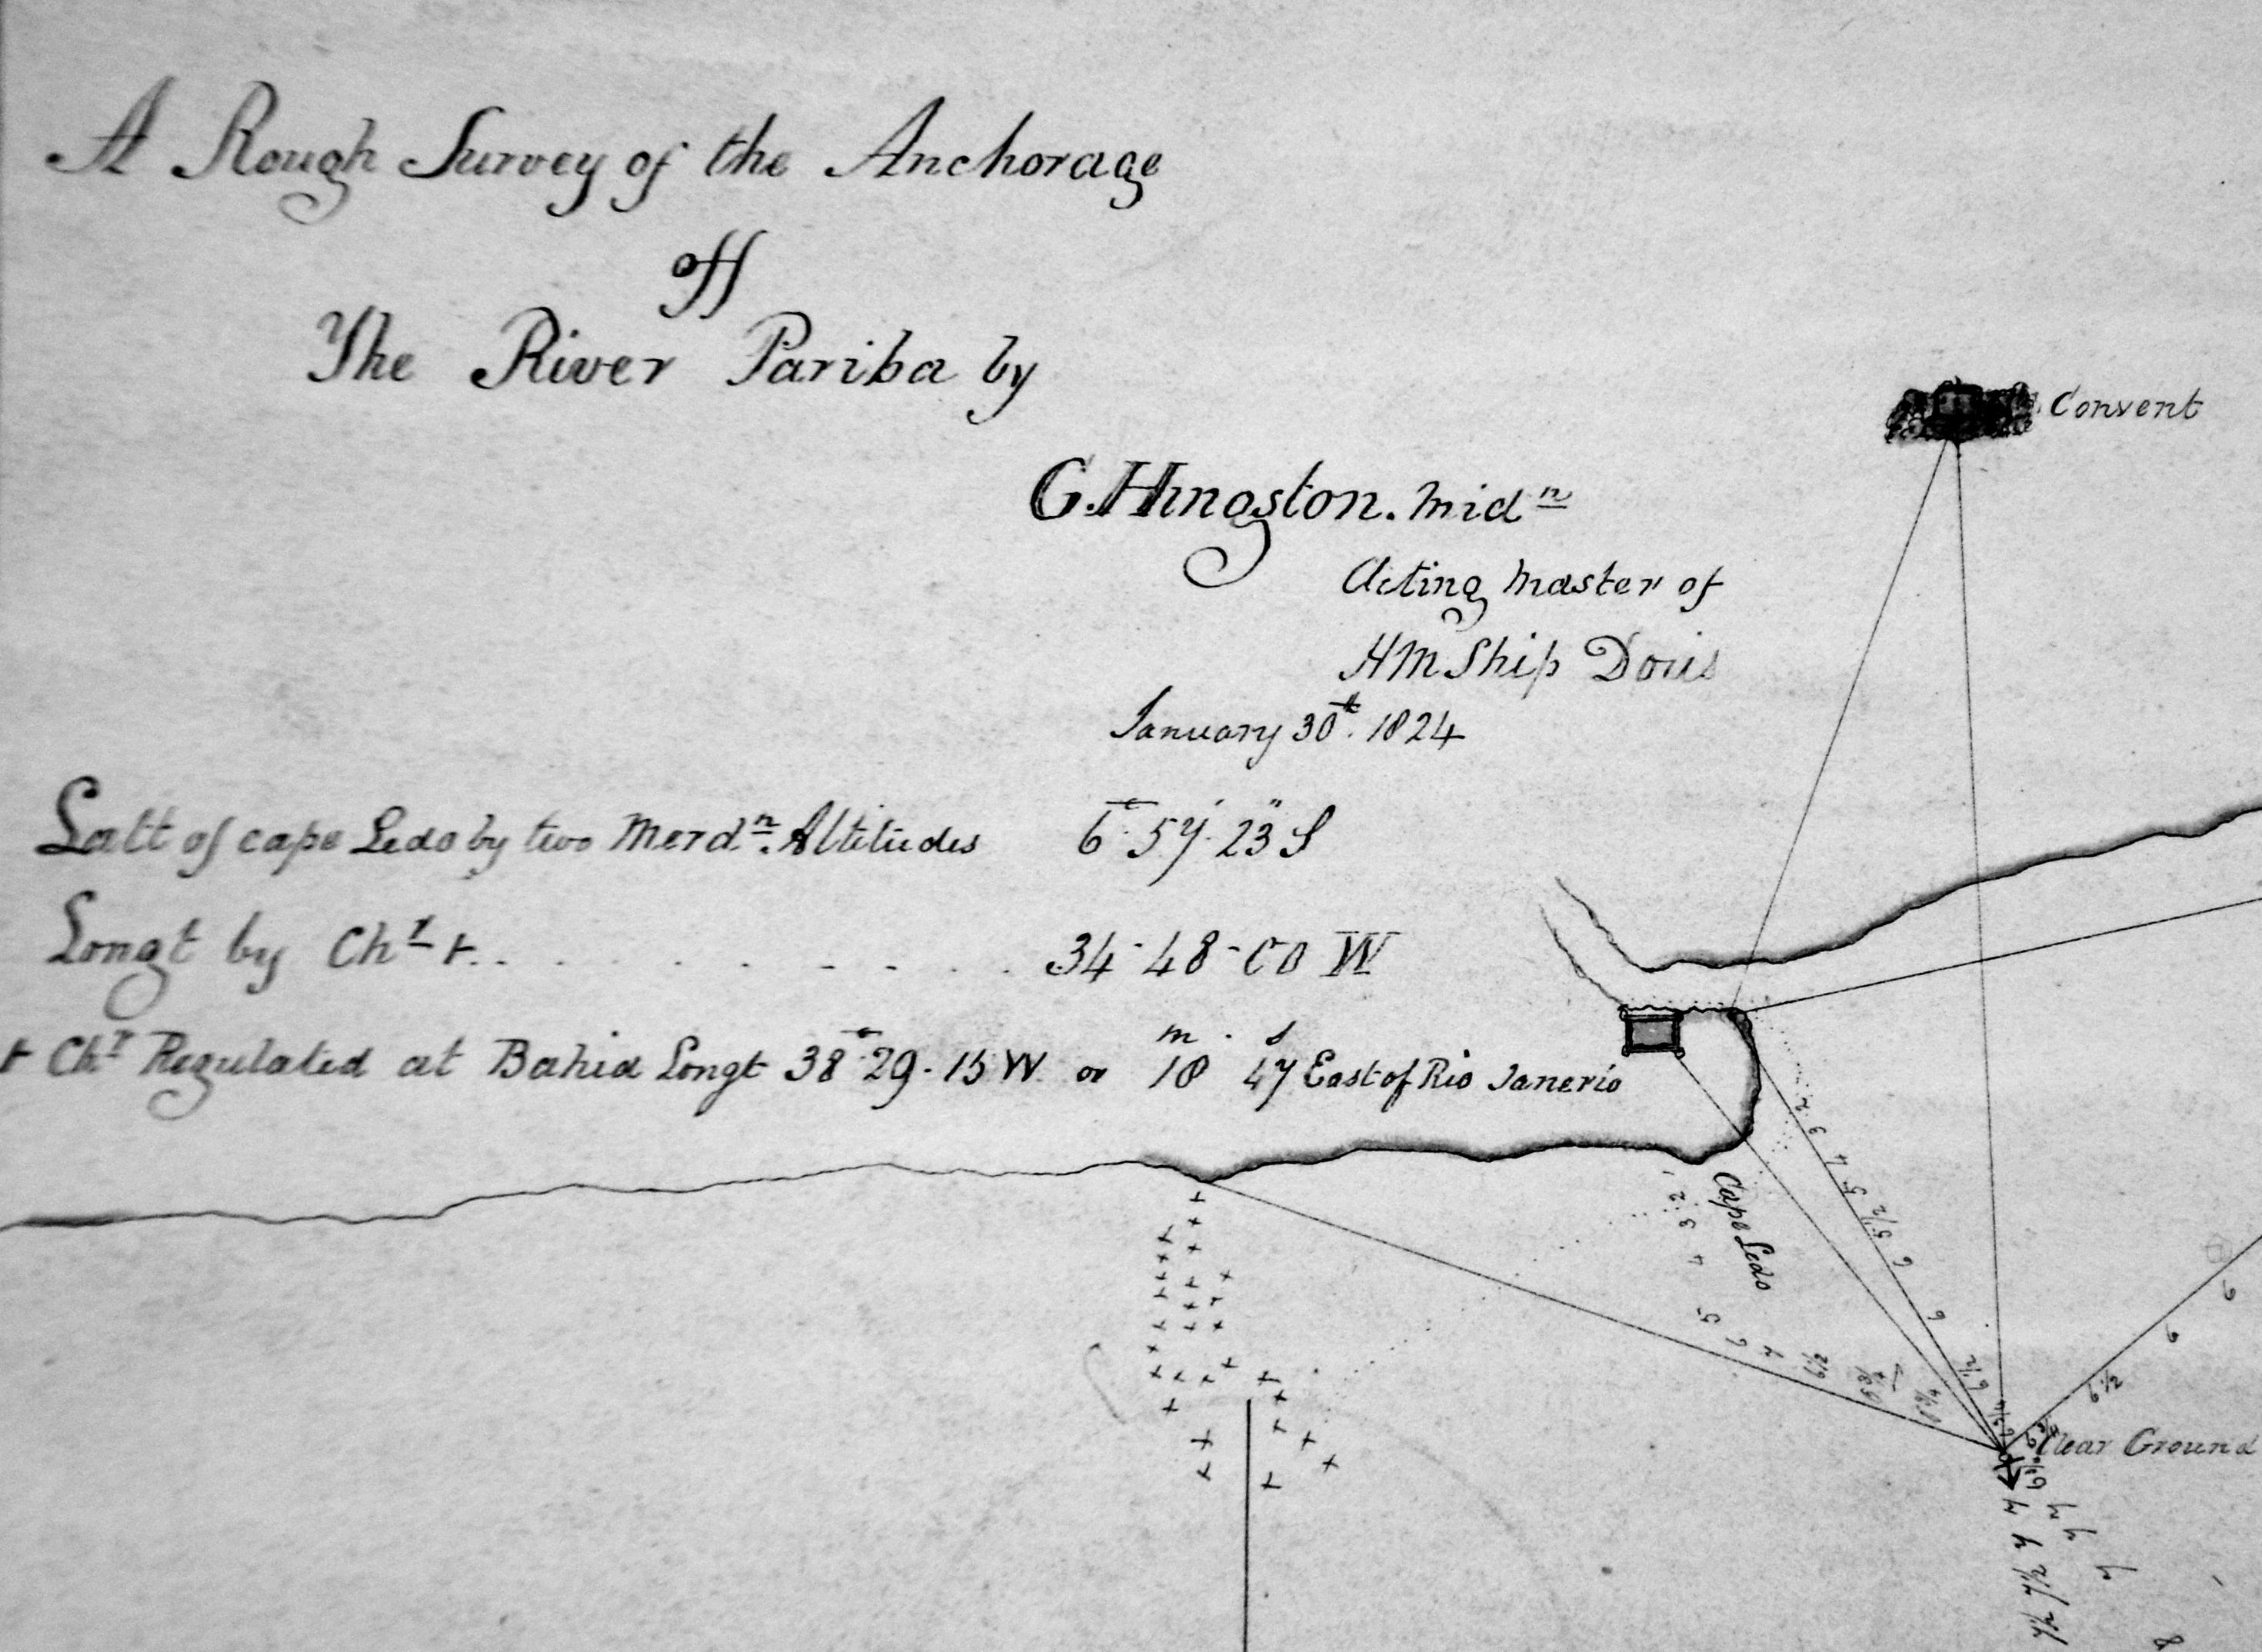 A Rough Survey of the Anchorage
off
The River Pariba by
G. Hingston. Midn
Acting Master of
HM Ship Doris
January 30th. 1824
Convent
Latt of cape Ledo by two Merdn. Altitudes 6° 57' 23" S
Longt by Chr + . . . . . . . . . . 34 - 48 - 00 W
m s
+ Chr Regulated at Bahia Longt 38° 29 . 15 W or 18 47 East of Rio Janerio
Cape Ledo
2 3 4 5 5 1/2 6 6 6 1/2
1 2 3 4 5 6 7
6 6 6 1/2
Clear Ground
7 7 7 1/2 7 1/2
7 7 7 8